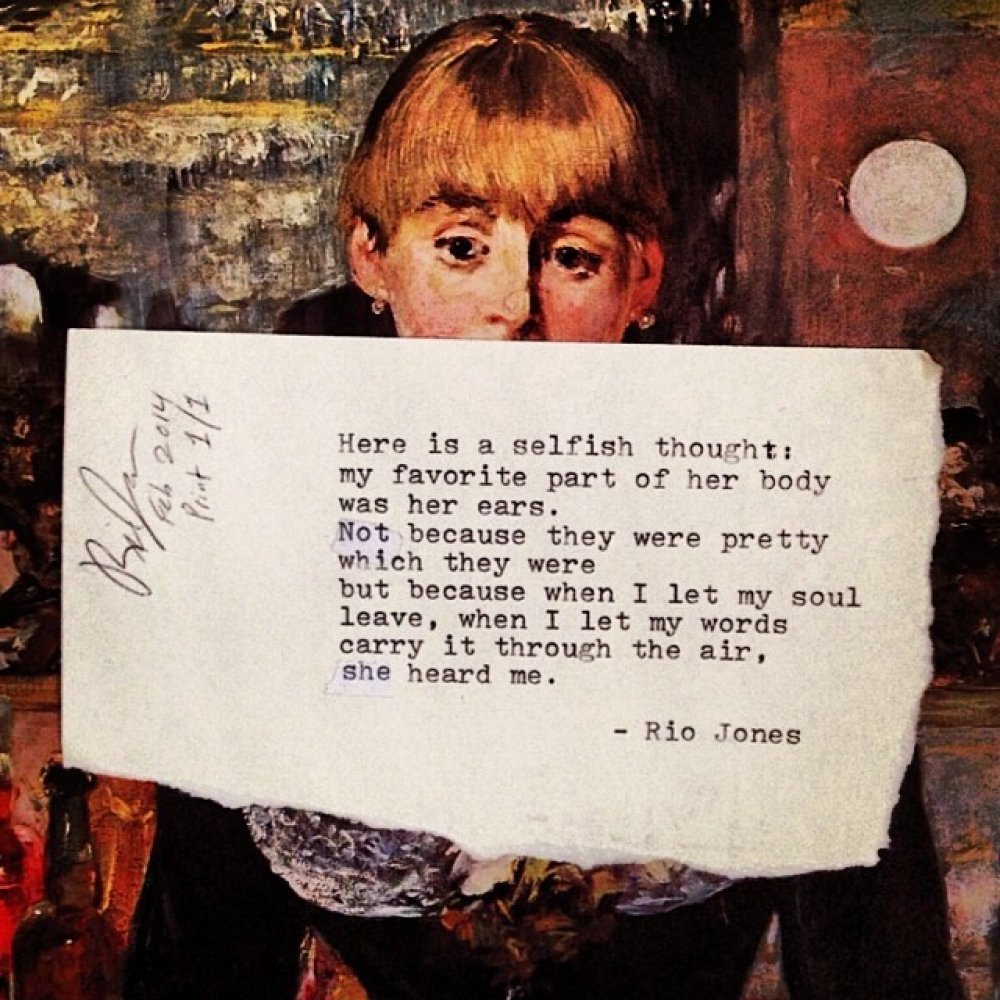 Feb 2014
Print 1/1
Here is a selfish thought:
my favorite part of her body
was her ears.
Not because they were pretty
which they were
but because when I let my soul
leave, when I let my words
carry it through the air,
she heard me.
- Rio Jones